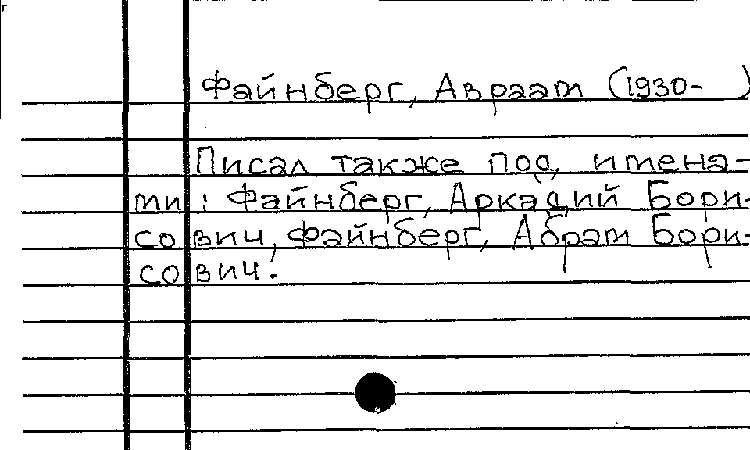 Файнберг, Авраам (1930- )
Писал также под имена-
ми: Файнберг, Аркадий Бори-
сович, Файнберг, Абрам Бори-
сович.